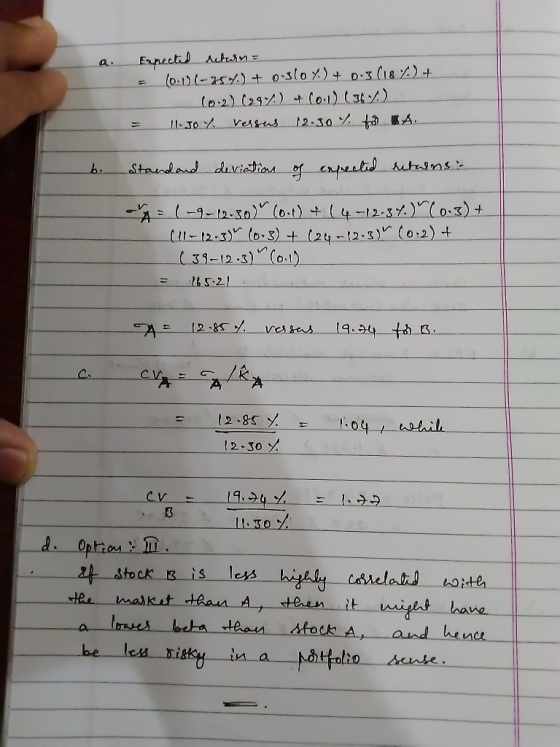 a. Expected return =
= (0.1)(-35%) + 0.3(0%) + 0.3(18%) +
(0.2)(29%) + (0.1)(36%)
= 11.30% versus 12.30% for A.
b. Standard deviation of expected returns:-
σ²A = (-9-12.30)² (0.1) + (4-12.3%)² (0.3) +
(11-12.3)² (0.3) + (24-12.3)² (0.2) +
(39-12.3)² (0.1)
= 165.21
σA = 12.85% versus 19.74 for B.
c. CVA = σA / k̂A
= 12.85% / 12.30% = 1.04, while
CV B = 19.74% / 11.30% = 1.77
d. Option:- III.
If stock B is less highly correlated with
the market than A, then it might have
a lower beta than stock A, and hence
be less risky in a portfolio sense.